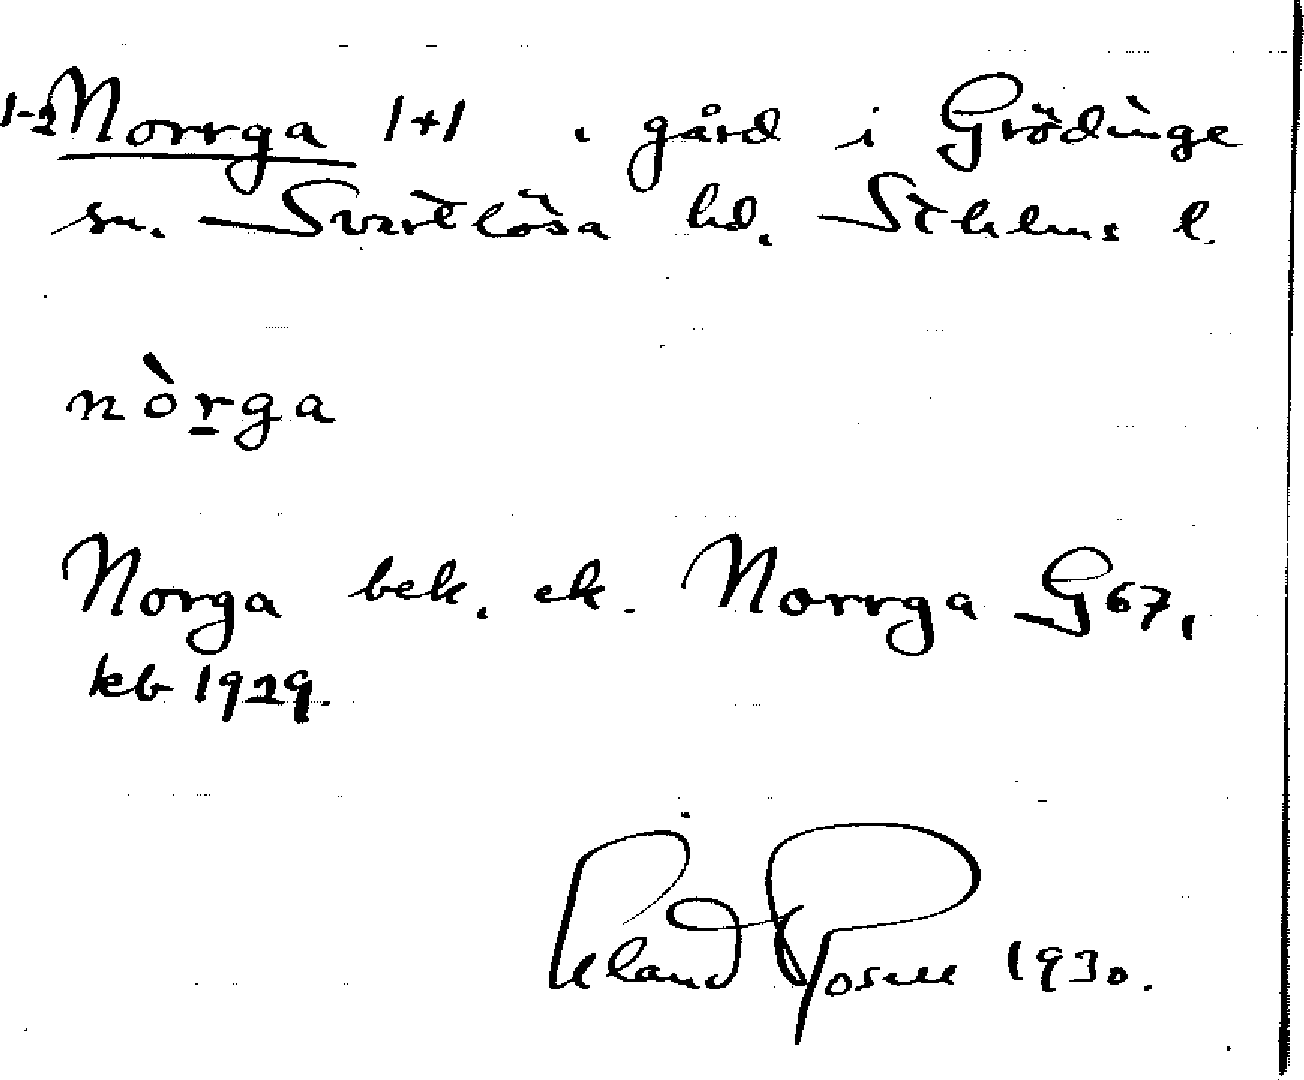 1-2 Norrga 1+1 . gård i Grödinge
sn. Svartlösa hd. Sthlms l.
nòrga
Norga bek. ek. Norrga G67,
kb 1929.
Erland Rosell 1930.